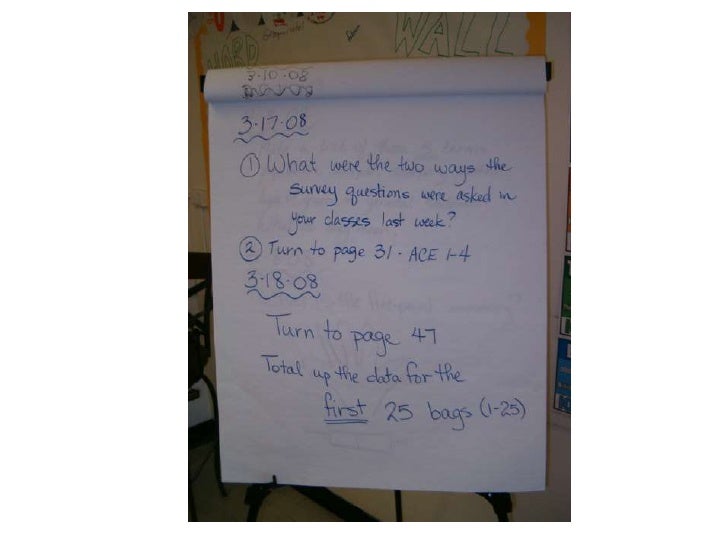 WORD
WALL
3-10-08
3-17-08
① What were the two ways the
survey questions were asked in
your classes last week?
② Turn to page 31 - ACE 1-4
3-18-08
Turn to page 47
Total up the data for the
first 25 bags (1-25)